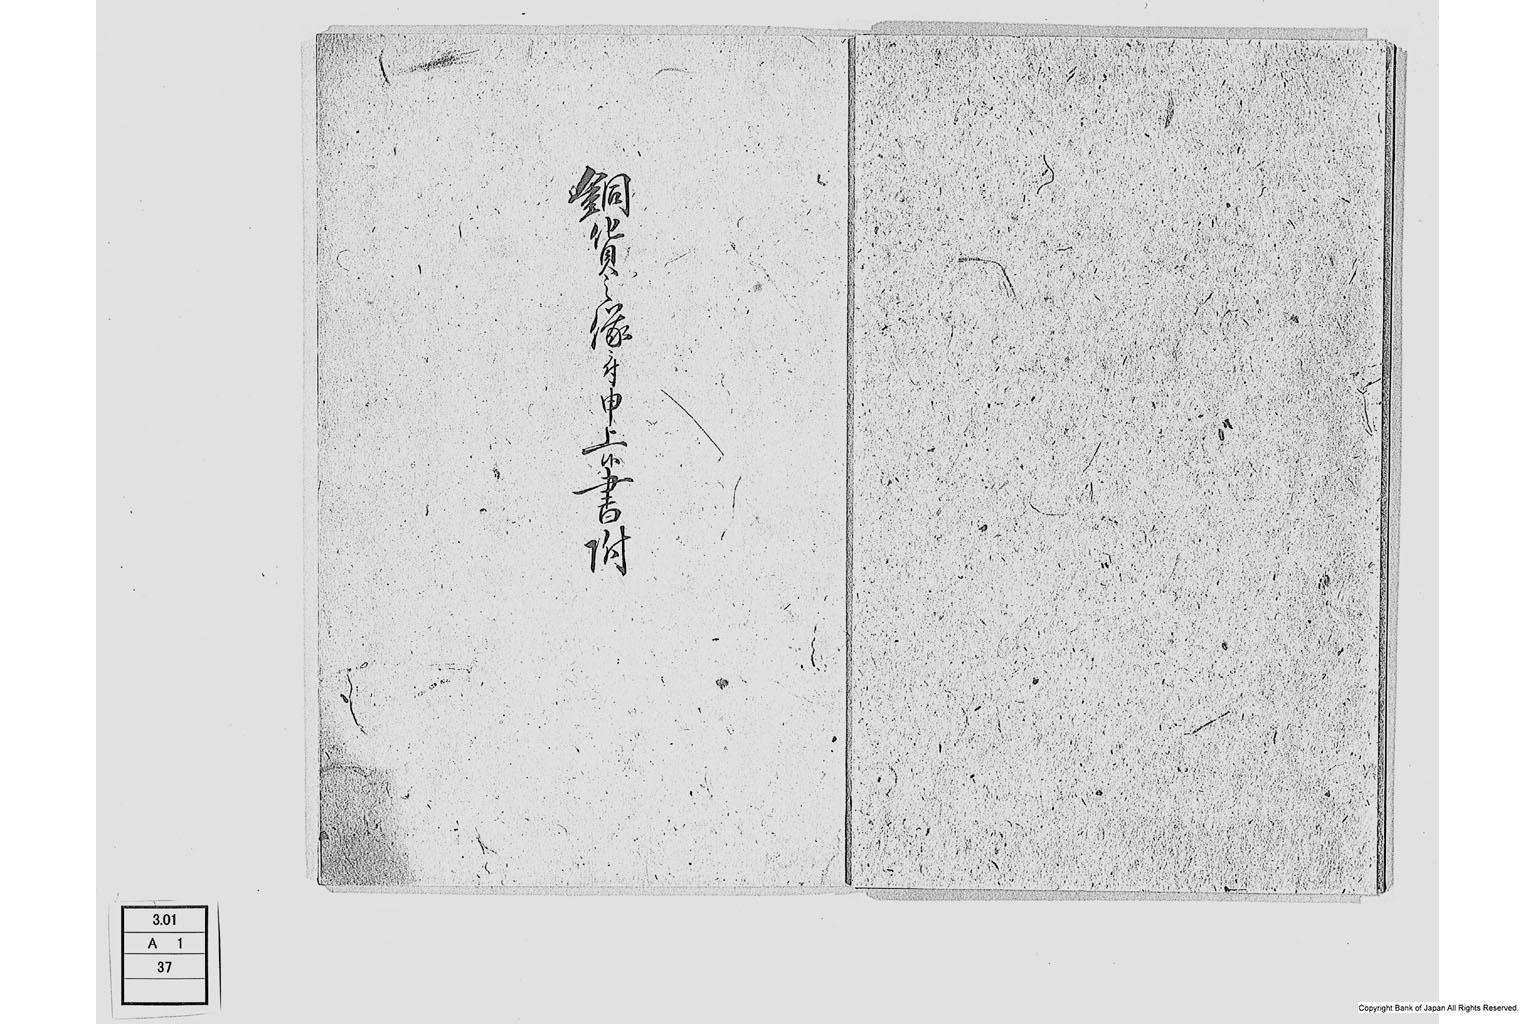 銅貨之儀ニ付申上候書附
3.01
A 1
37
Copyright Bank of Japan All Rights Reserved.